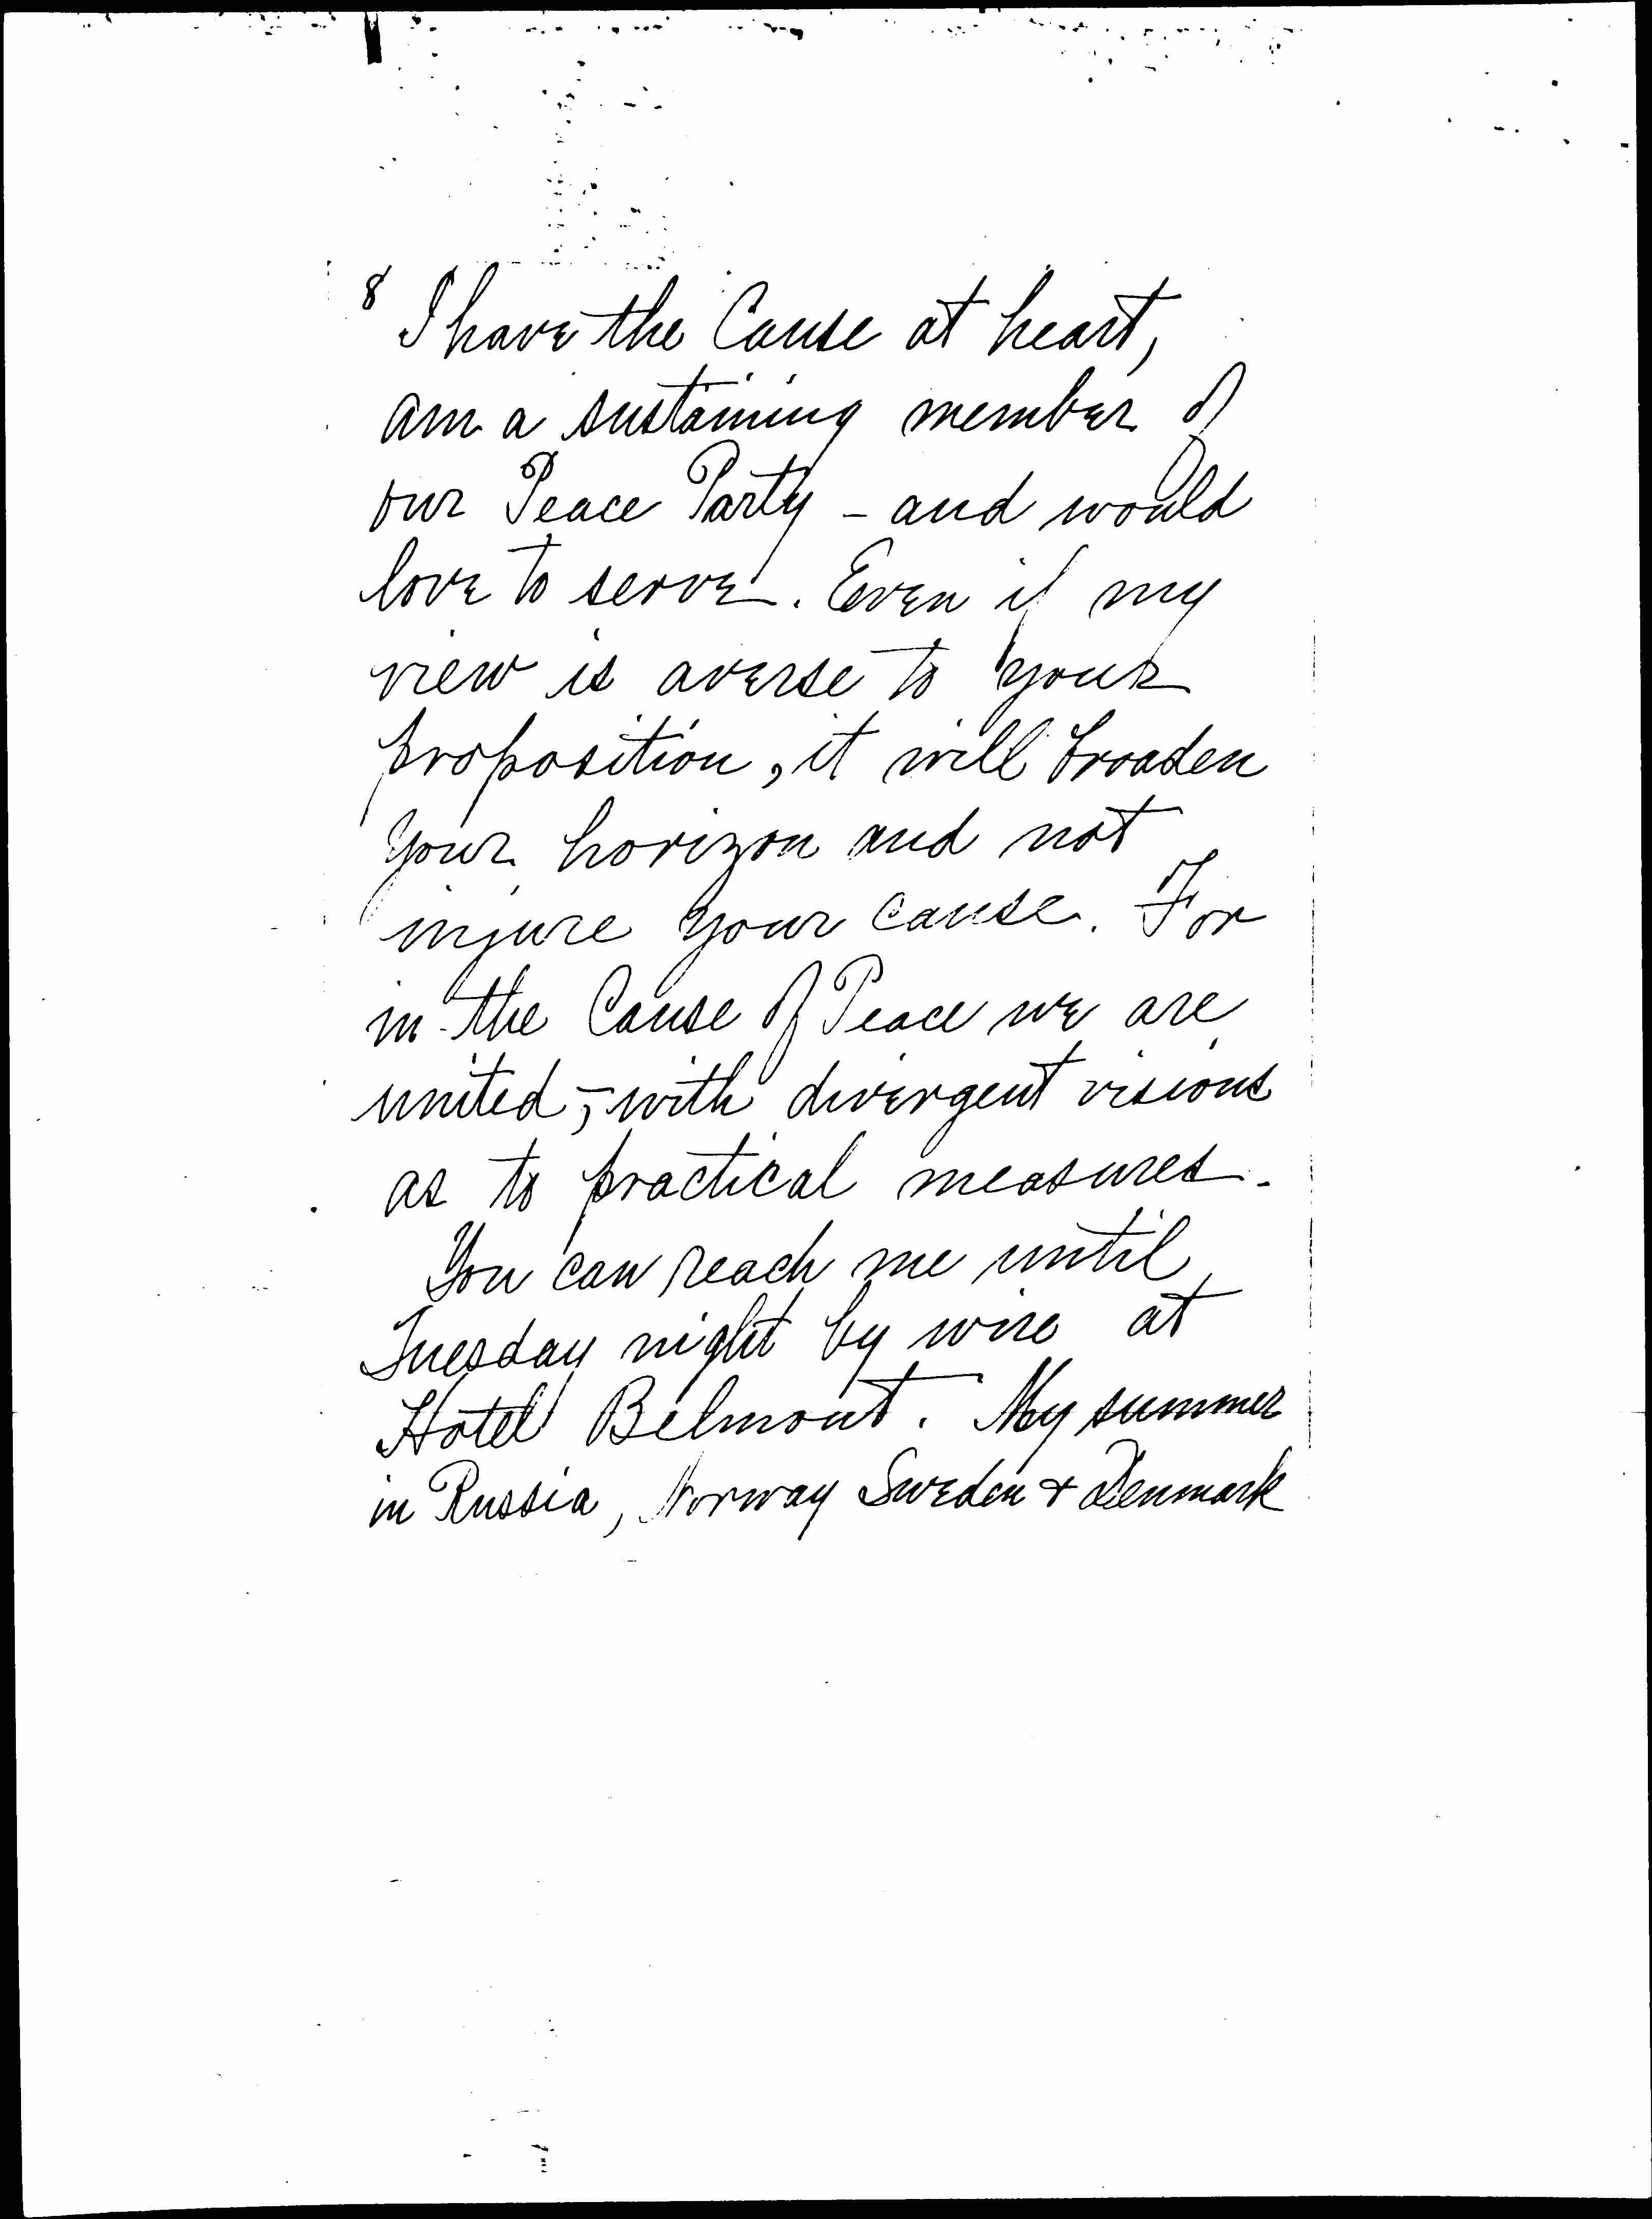 8
I have the Cause at heart,
am a sustaining member of
our Peace Party - and would
love to serve. Even if my
view is averse to your
proposition, it will broaden
your horizon and not
injure your cause. For
in the Cause of Peace we are
united, - with divergent visions
as to practical measures.
You can reach me until
Tuesday night by wire at
Hotel Belmont. My summer
in Russia, Norway Sweden & Denmark